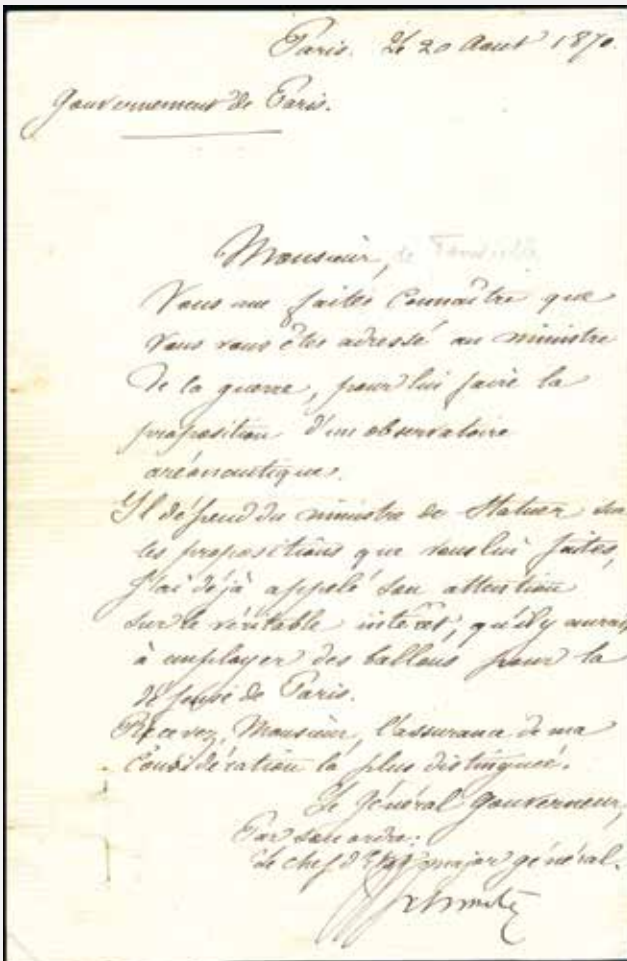 Paris. Le 20 Aout 1870.
Gouvernement de Paris.
Monsieur, de Fonvielle
Vous me faites connaître que
Vous vous êtes adressé au ministre
de la guerre, pour lui faire la
proposition d'un observatoire
aréonautique.
Il dépend du ministre de Statuer sur
les propositions que vous lui faites,
J'ai déjà appelé son attention
sur le véritable intérêt, qu'il y aurait
à employer des ballons pour la
défense de Paris.
Recevez, Monsieur, l'assurance de ma
Considération la plus distinguée.
Le Général Gouverneur,
Par son ordre:
Le chef d'Etat major général.
Schmitz